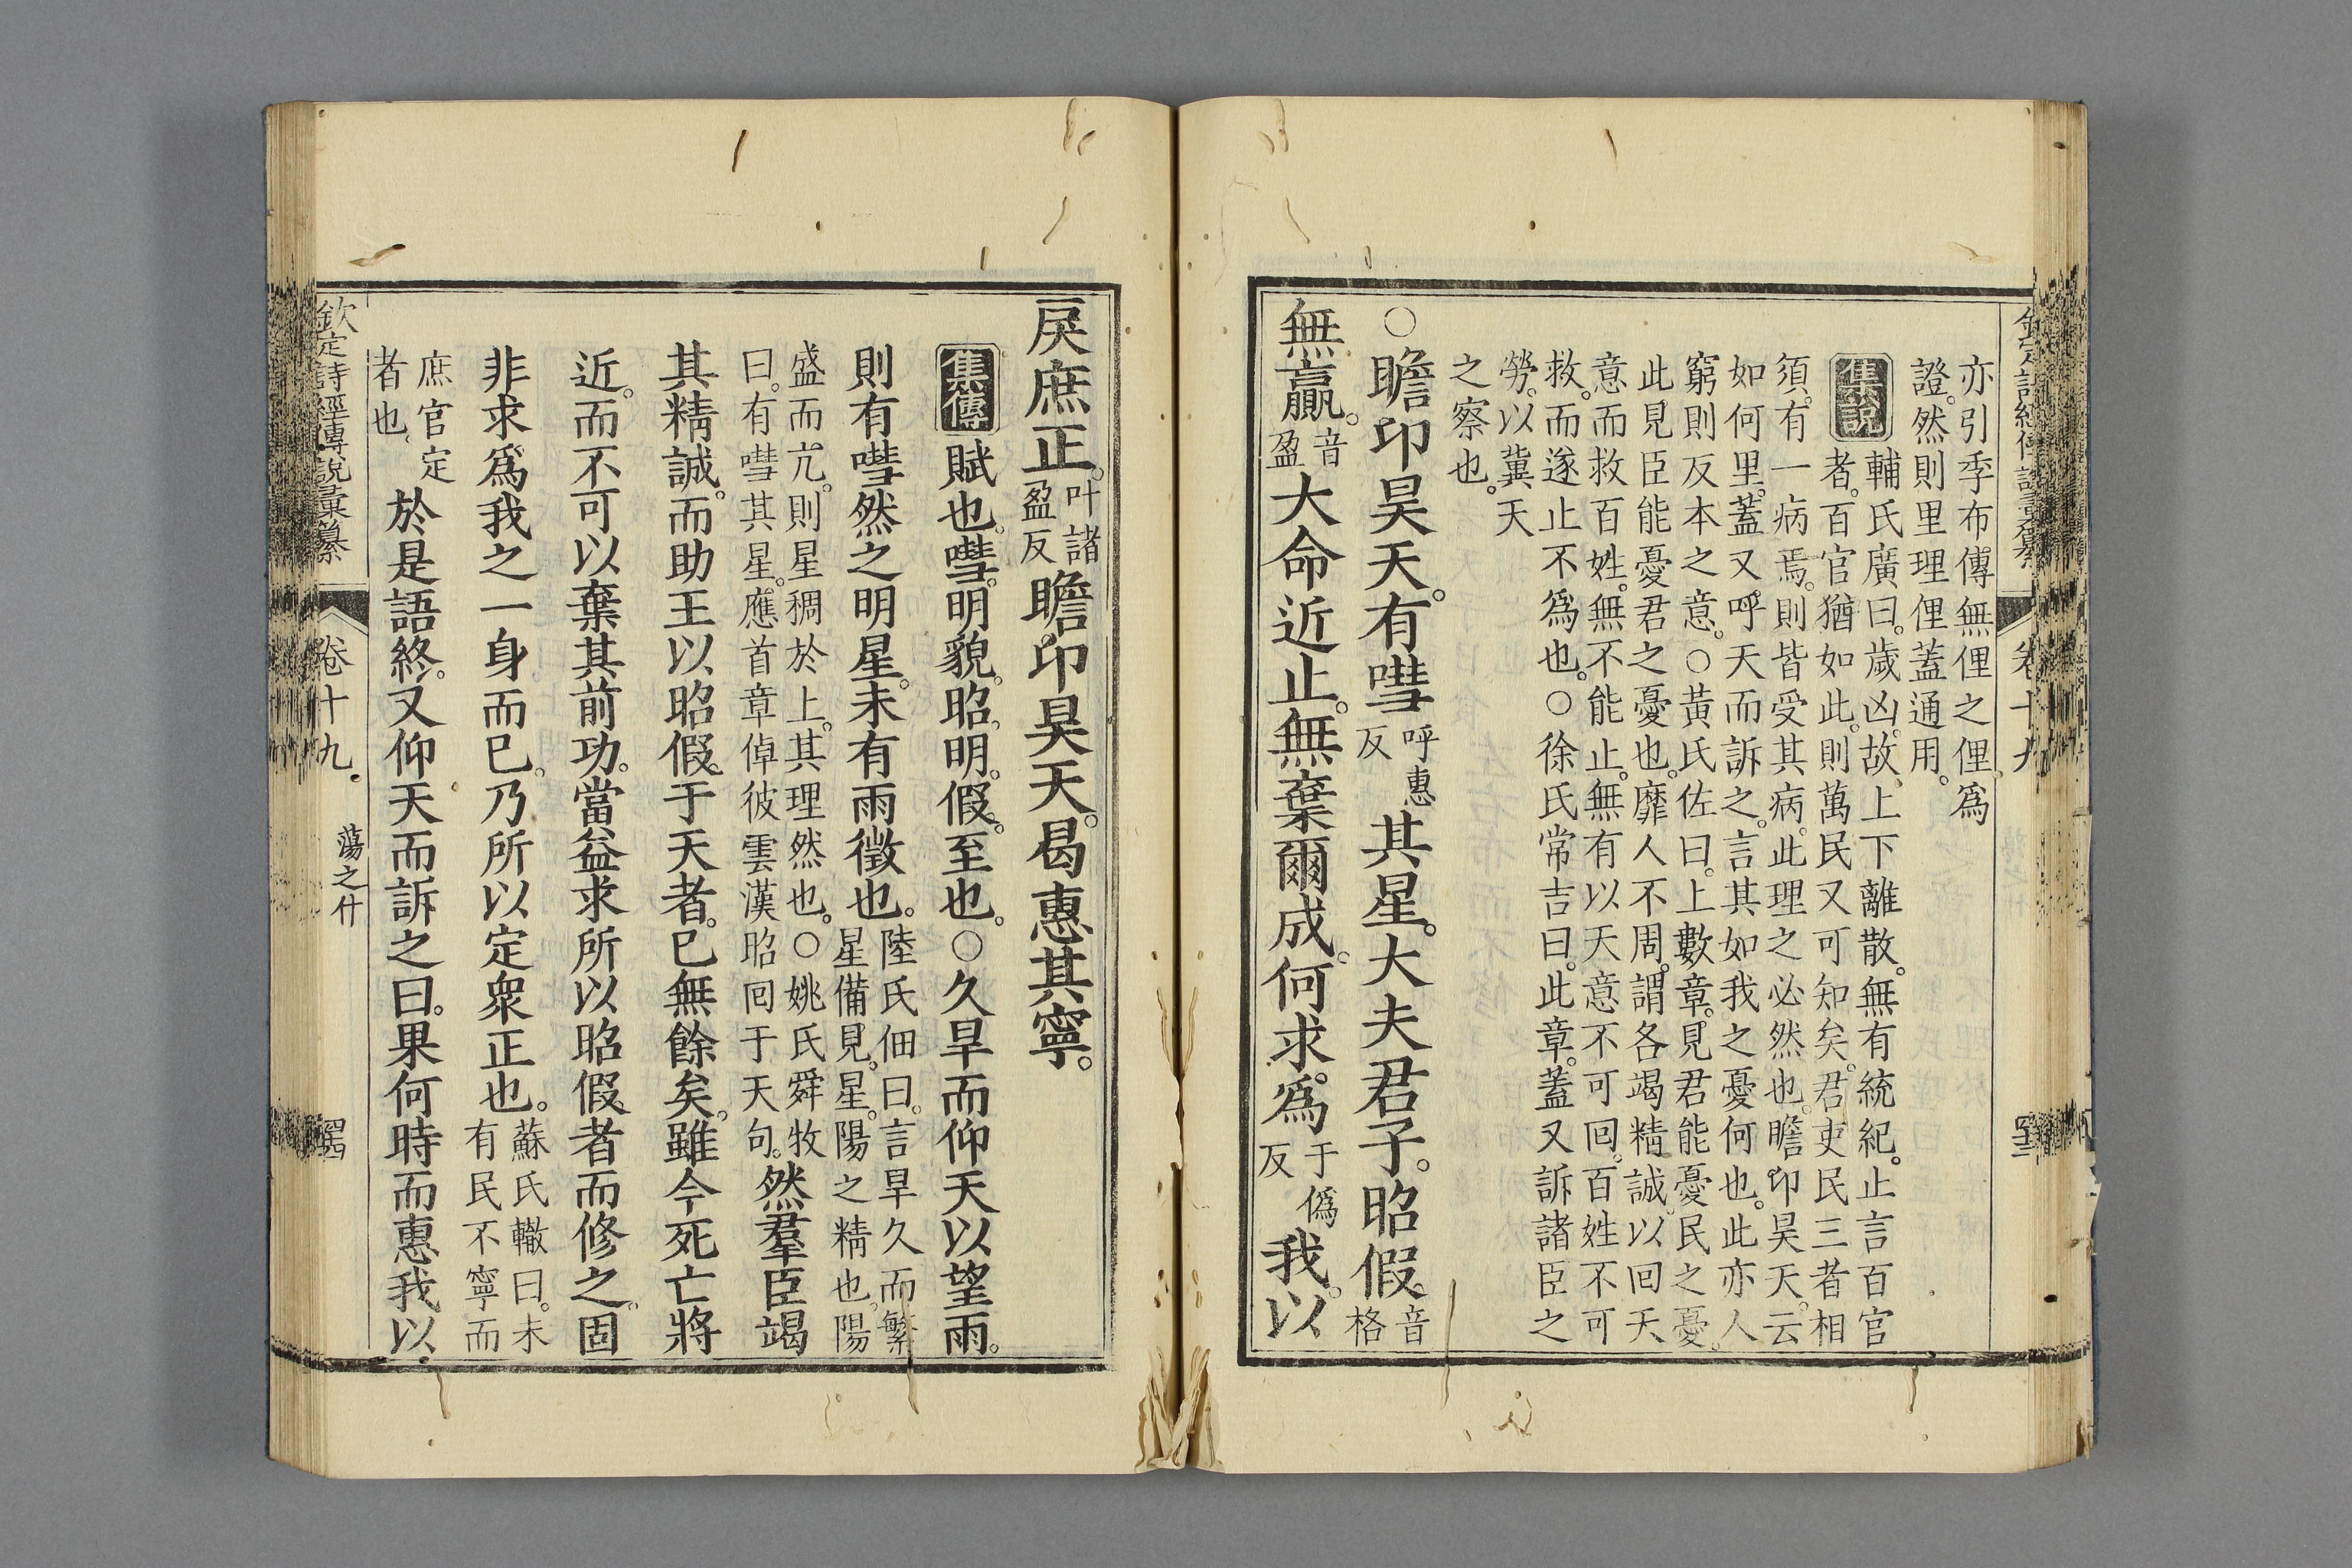 亦引季布傳無俚之俚。爲
證。然則里理俚蓋通用。
集說 輔氏廣曰。歲凶。故上下離散。無有統紀。止言百官
者。百官猶如此。則萬民又可知矣。君吏民三者相
須。有一病焉。則皆受其病。此理之必然也。瞻卬昊天。云
如何里。蓋又呼天而訴之。言其如我之憂何也。此亦人
窮則反本之意。○黃氏佐曰。上數章。見君能憂民之憂。
此見臣能憂君之憂也。靡人不周。謂各竭精誠。以回天
意而救百姓。無不能止。無有以天意不可回。百姓不可
救。而遂止不爲也。○徐氏常吉曰。此章。蓋又訴諸臣之
勞。以冀天
之察也。
○瞻卬昊天。有嘒呼惠反其星。大夫君子。昭假音格
無贏。音盈大命近止。無棄爾成。何求。爲于僞反我。以
戾庶正。叶諸盈反瞻卬昊天。曷惠其寧。
集傳 賦也。嘒。明貌。昭。明。假。至也。○久旱而仰天以望雨。
則有嘒然之明星。未有雨徵也。陸氏佃曰。言旱久而繁星備見。星。陽之精也。陽
盛而亢。則星稠於上。其理然也。○姚氏舜牧曰。有嘒其星。應首章倬彼雲漢昭回于天句。然羣臣竭
其精誠。而助王以昭假于天者。已無餘矣。雖今死亡將
近。而不可以棄其前功。當益求所以昭假者而修之。固
非求爲我之一身而已。乃所以定衆正也。蘇氏轍曰。未有民不寧而
庶官定者也。於是語終。又仰天而訴之曰。果何時而惠我以
欽定詩經傳說彙纂 卷十九 蕩之什